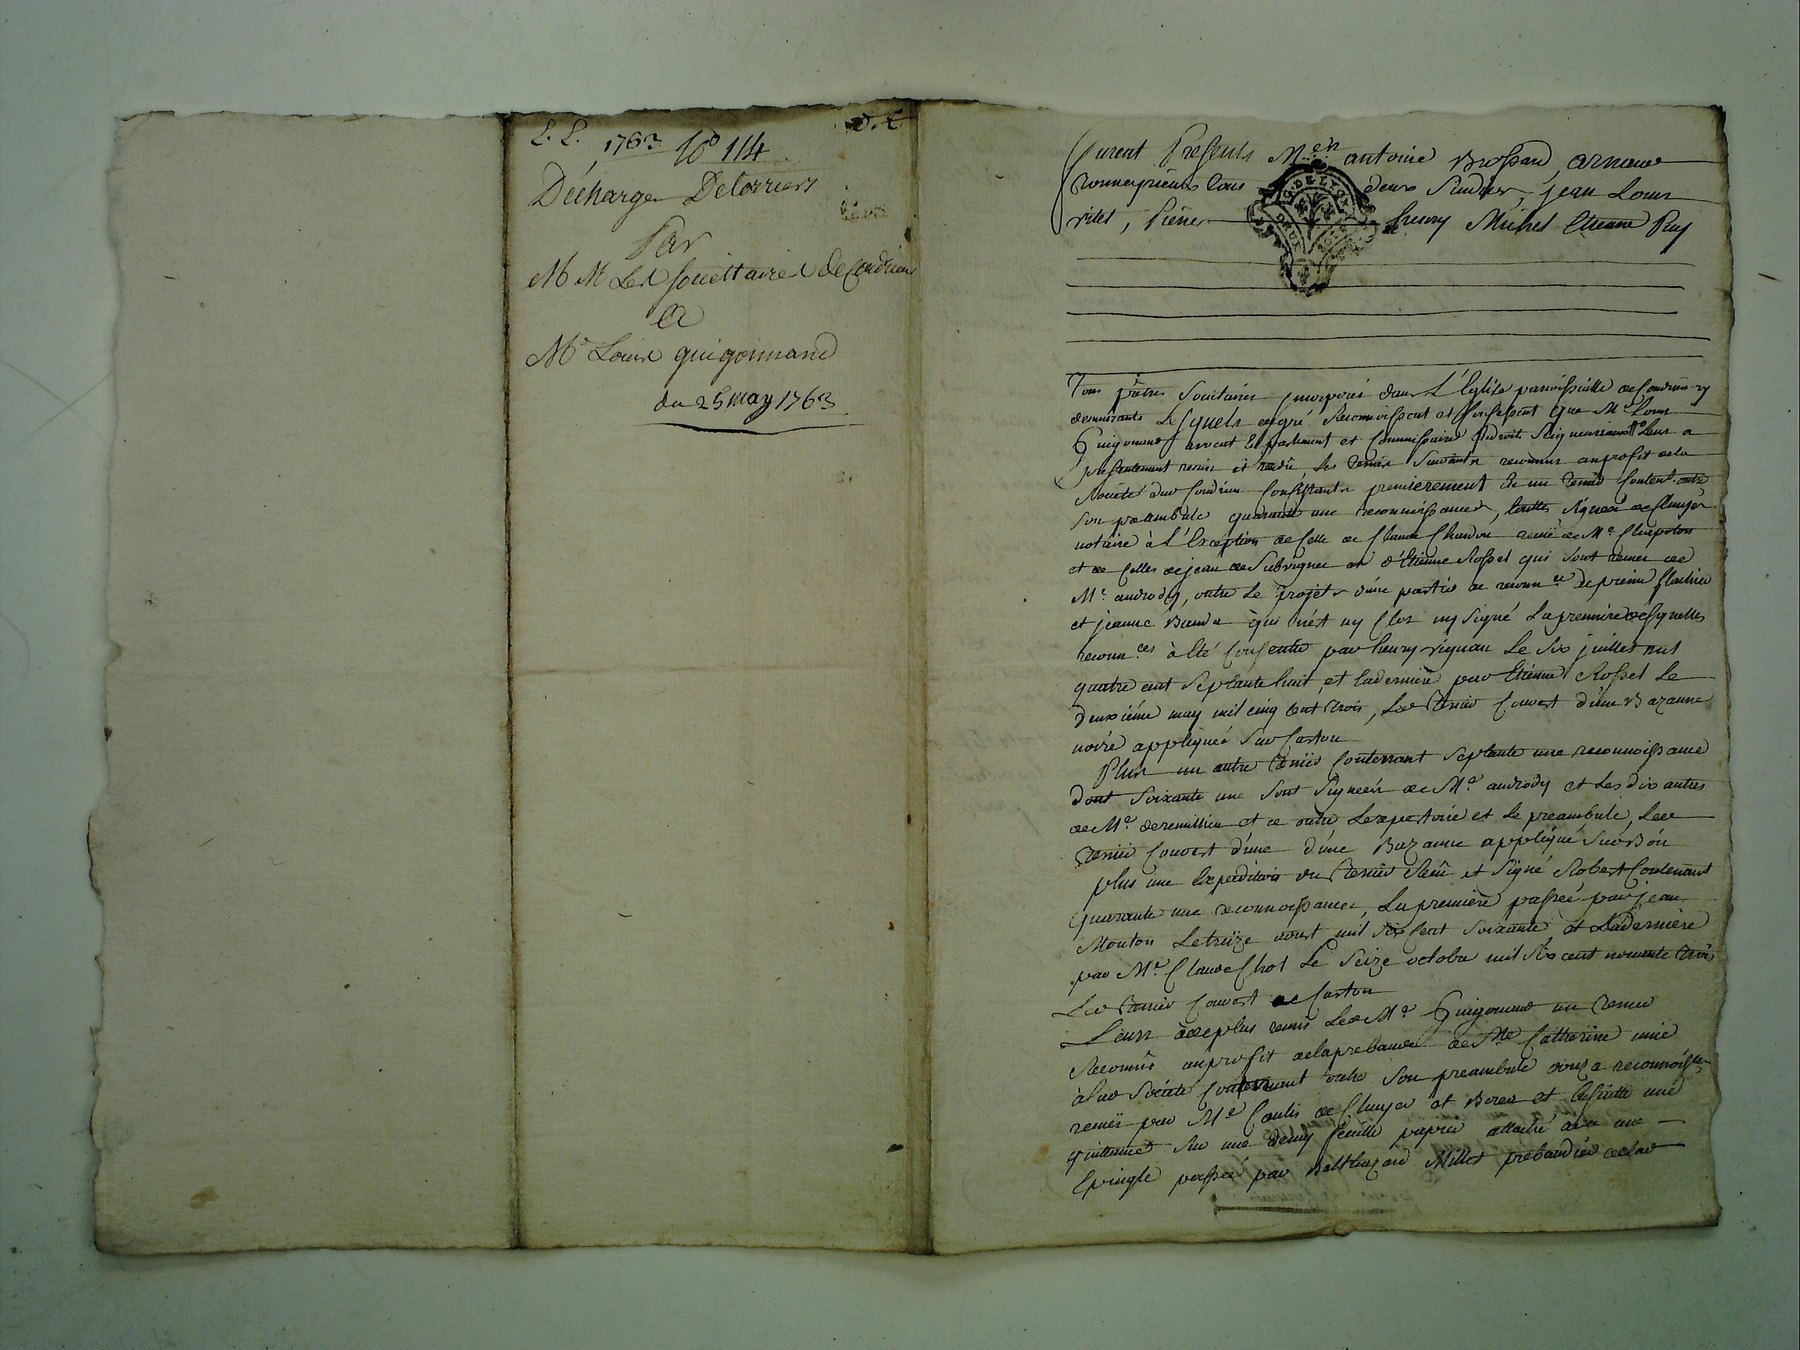 L. L. 1763 No 114
Décharge De terriers
Par
M M Les Societtaires de Condrieu
A
Me Louis guigonnand
du 25 may 1763
furent Presents Mers antoine Brossard, arnaud
tous deux Sindics, jean Louis
vitet, Pierre henry Michel Etienne Puy
G. DE LYON
Tous prêtres Societaires incorporés dans L'Eglise paroissialle de Condrieu y
demeurants Lesquels de gré Reconnoissent et Confessent que Me Louis
Guigonand avocat En parlement et Commissaire Endroits Seigneuriaux Leur a
presentement remis et rendu, les terriers Suivants reconnus au profit de la
Societé dud Condrieu Consistants premierement En un terrier Contenant outre
Son préambule quarante une reconnoissances, touttes signées de Cluyer
notaire à L'Exception de Celle de Claude Chardon remie de Me Chapolon
et de Celles de jean de Subrignes et d'Etienne Rosset qui Sont remes de
Me andrody, outre le projet d'une partie de reconnce de preine
et jeanne qui n'est ny Clos ny Signé La premiere desquelles
reconnces à été Consentie par henry vignau Le Six juillet mil
quatre cent Septante huit, et la derniere par Etienne Rosset Le
deuxiéme may mil cinq cent trois, Led terrier Couvert d'une Bazanne
noire appliqueé Sur Carton
Plus un autre terrier Contenant Septante une reconnoissance
dont Soixante une Sont Signeés de Me andrody et Les dix autres
de Me deremillieu et ce outre Le repertoire et le preambule, Led
terrier Couvert d'une d'une Bazanne appliqué Sur Bois
plus une Expedition du terrier Remi et Signé Robert Contenant
Quarante une reconnoissances, La premiere passée par jean
Mouton Le treize aoust mil Six Cent Soixante et La Derniere
par Me Claude Chol Le Seize octobre mil Six cent nonante trois
Led terrier Couvert de Carton
Leurs à de plus remis Led Me Guigonand un terrier
Reconnû au profit de la prebande de Ste Catherine unie
à lad Societé Contenant outre Son preambule onze reconnoisces
remies par Me Contis de Cluyer et Boreas et Ensuitte une
quittance Sur une demy feuille papier attaché avec une
Epingle passée par Balthazard Millet prebandier de lad